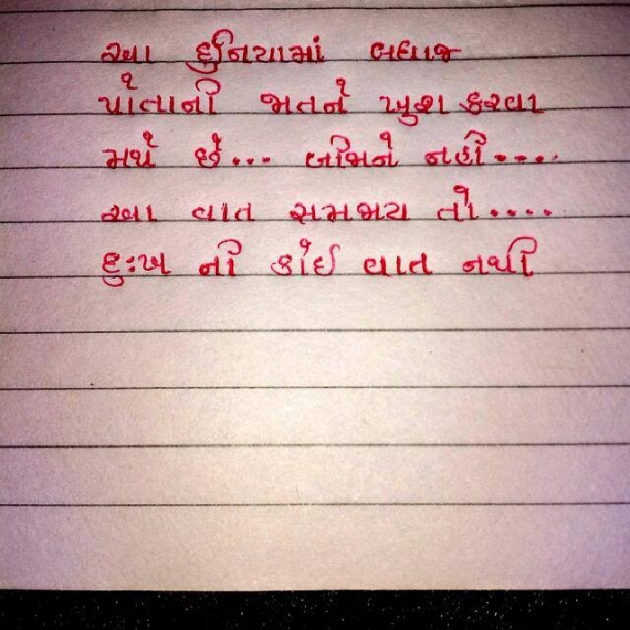 આ દુનિયામાં બધાજ
પોતાની જાતને ખુશ કરવા
મથે છે... બીજાને નહી....
આ વાત સમજાય તો....
દુઃખ ની કોઈ વાત નથી